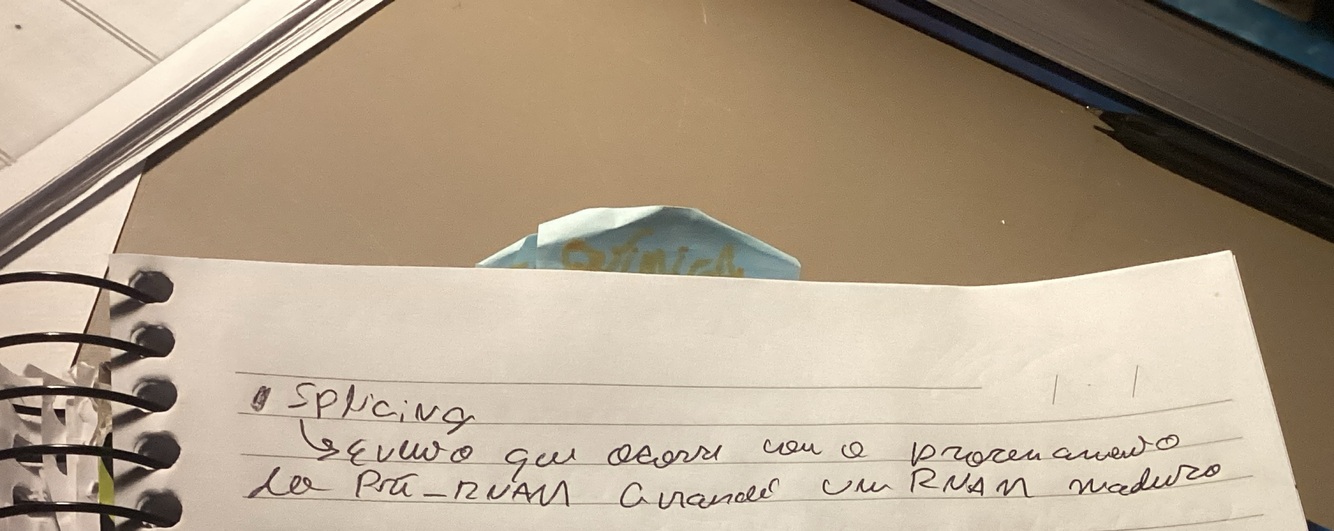 Química
Splicing
↳ Evento que ocorre com o processamento
do Pré-RNAm Gerando um RNAm maduro